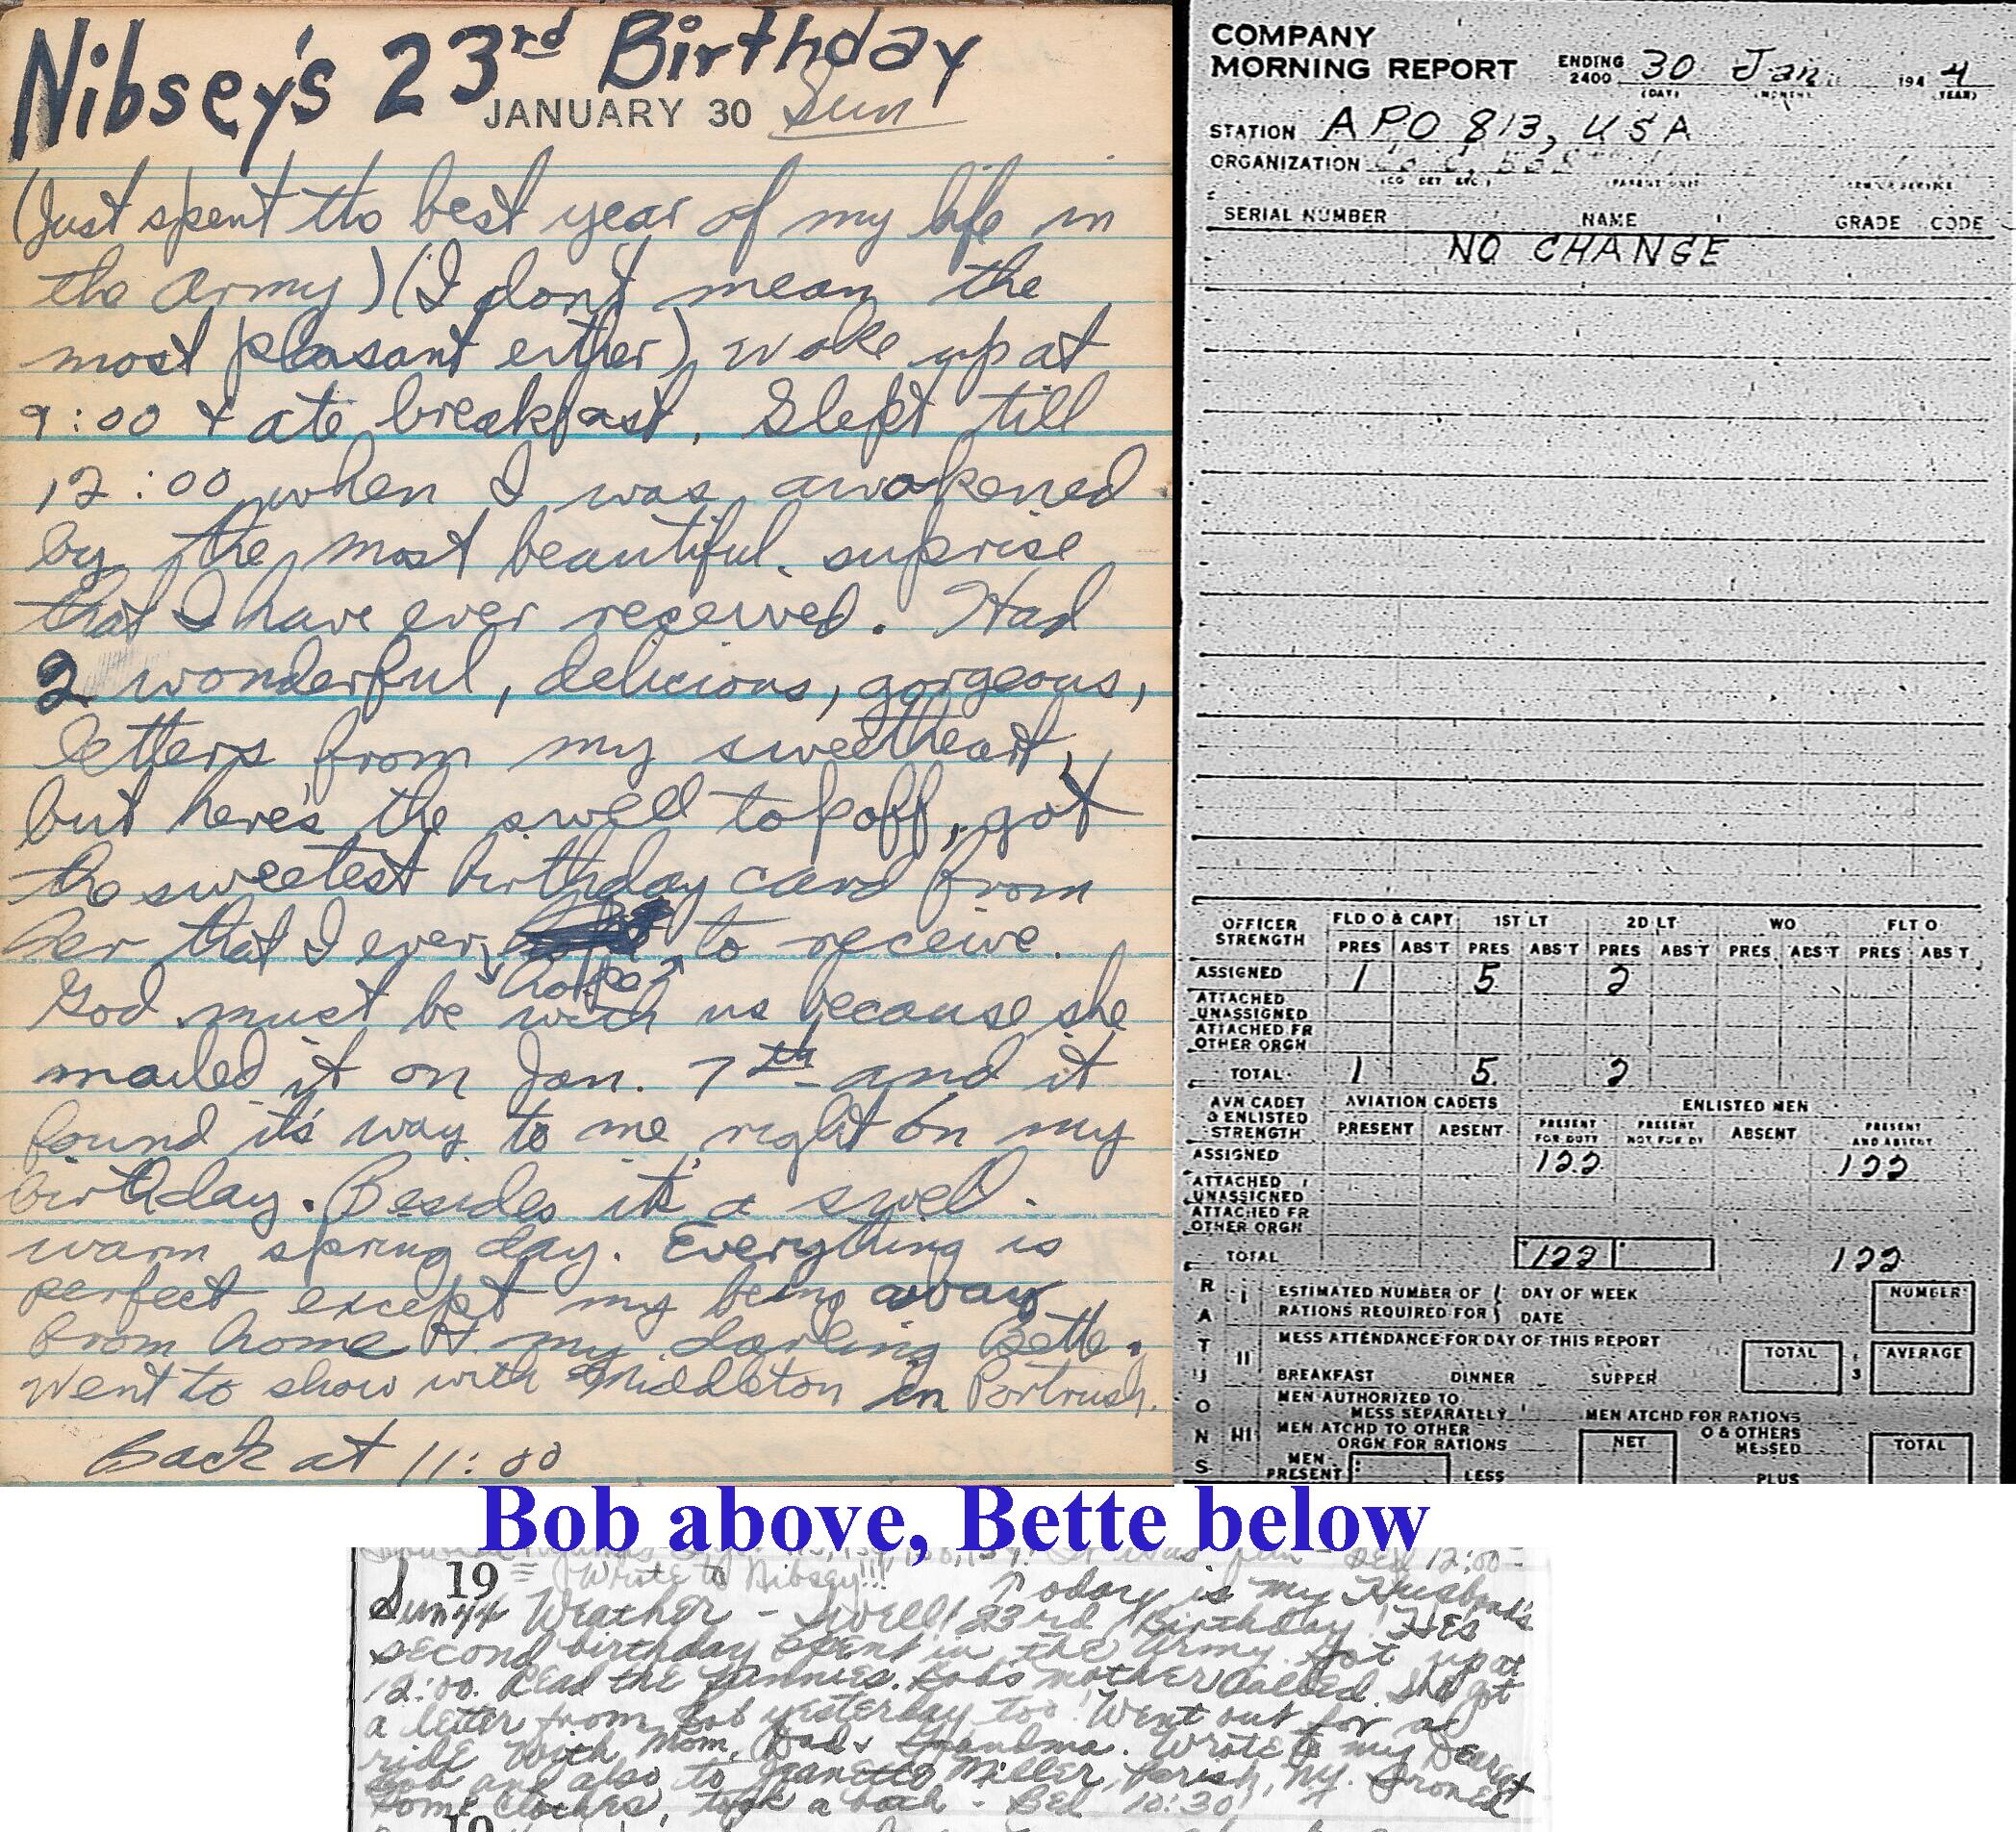 Nibsey's 23rd Birthday
JANUARY 30 Sun
(Just spent tho best year of my life in
the army) (I don't mean the
most pleasant either) woke up at
9:00 + ate breakfast. Slept till
12:00 when I was awakened
by the most beautiful suprise
that I have ever received. Had
2 wonderful, delicious, gorgeous,
letters from my sweetheart,
but here's the swell topoff, got
the sweetest birthday card from
her that I ever to receive.
hope
God must be with us because she
mailed it on Jan. 7th and it
found it's way to me right on my
birthday. Besides it's a swell
warm spring day. Everything is
perfect except my being away
from home & my darling Bette.
Went to show with Middleton in Portrush.
Back at 11:00
COMPANY
MORNING REPORT ENDING 2400 30 Jan. 194 4
(DAY) (MONTH) (YEAR)
STATION APO 813, USA
ORGANIZATION Co C,
(CO DET ETC) (PARENT UNIT) (ARM OR SERVICE)
SERIAL NUMBER NAME GRADE CODE
NO CHANGE
OFFICER STRENGTH FLD O & CAPT 1ST LT 2D LT WO FLT O
PRES ABS'T PRES ABS'T PRES ABS'T PRES ABS'T PRES ABS T
ASSIGNED 1 5 2
ATTACHED UNASSIGNED
ATTACHED FR OTHER ORGN
TOTAL 1 5 2
AVN CADET & ENLISTED STRENGTH AVIATION CADETS ENLISTED MEN
PRESENT ABSENT PRESENT FOR DUTY PRESENT NOT FOR DY ABSENT PRESENT AND ABSENT
ASSIGNED 122 122
ATTACHED UNASSIGNED
ATTACHED FR OTHER ORGN
TOTAL 122 122
RATIONS
I ESTIMATED NUMBER OF RATIONS REQUIRED FOR DAY OF WEEK DATE NUMBER
II MESS ATTENDANCE FOR DAY OF THIS REPORT TOTAL ÷ 3 AVERAGE
BREAKFAST DINNER SUPPER
III MEN AUTHORIZED TO MESS SEPARATELY MEN ATCHD FOR RATIONS
MEN ATCHD TO OTHER ORGN FOR RATIONS NET O & OTHERS MESSED TOTAL
MEN PRESENT LESS PLUS
Bob above, Bette below
It was fun - Bed 12:00
19 Wrote to Nibsey!!!
Sun 44 Weather - Swell! Today is my Husband's
23rd Birthday! He's
second birthday spent in the army. Got up at
12:00. Read the funnies. Bob's mother called. She got
a letter from Bob yesterday too! Went out for a
ride with Mom, Dad & Grandma. Wrote to my Dearest
Bob and also to Jeanette Miller, Parish, NY. Ironed
some clothes, took a bath - Bed 10:30!
19